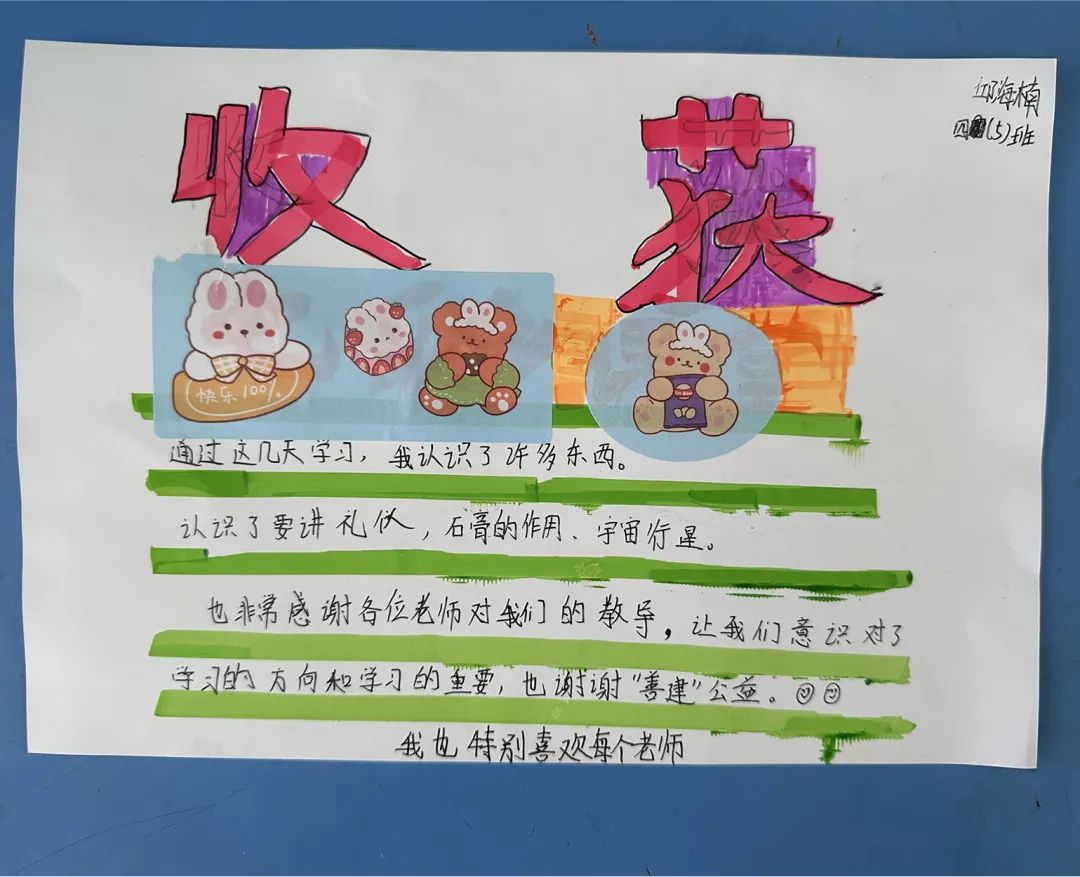 收获
邱海楠
四(5)班
快乐100%
通过这几天学习，我认识了许多东西。
认识了要讲礼仪，石膏的作用、宇宙行星。
也非常感谢各位老师对我们的教导，让我们意识对了
学习的方向和学习的重要，也谢谢“善建”公益。☺☺
我也特别喜欢每个老师